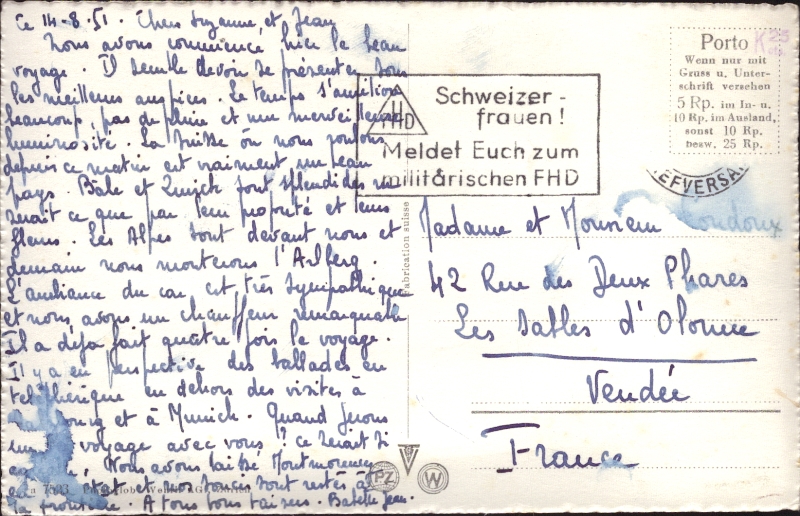 Ce 14-8.51. Chers Suzanne et Jean
Nous avons commencé hier le beau
voyage. Il semble devoir se présenter sous
les meilleurs auspices. Le temps s'améliore
beaucoup, pas de pluie et une merveilleuse
luminosité. La Suisse où nous roulons
depuis ce matin est vraiment un beau
pays. Bâle et Zurich sont splendides ne
serait ce que par leur propreté et leurs
fleurs. Les Alpes sont devant nous et
demain nous monterons l'Arlberg.
L'ambiance du car est très sympathique
et nous avons un chauffeur remarquable
Il a déja fait quatre fois le voyage.
Il y a en perspective des ballades en
téléphérique en dehors des visites à
et à Munich. Quand ferons
un voyage avec vous? ce serait si
Nous avons laissé Montmorency
en état et nos soucis sont restés à
la frontière. A tous bons baisers. Babette Jean.
Schweizer-
frauen!
FHD
Meldet Euch zum
militärischen FHD
Porto
Wenn nur mit
Gruss u. Unter-
schrift versehen
5 Rp. im In- u.
10 Rp. im Ausland,
sonst 10 Rp.
bezw. 25 Rp.
EFVERSA
Fabrication suisse
Madame et Monsieur Coudoux
42 Rue des Deux Phares
Les Sables d'Olonne
Vendée
France
PZ
W